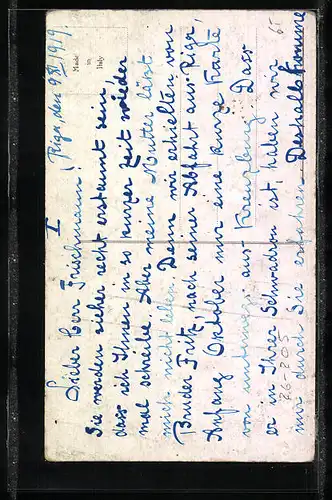 I
Riga, den 9.XI.1919.
Made
in
Italy
Lieber Herr Frischmann!
Sie werden sicher recht erstaunt sein,
dass ich Ihnen in so kurzer Zeit wieder
mal schreibe. Aber meine Mutter lässt
mich nicht eben. Denn wir erhielten von
Bruder Fritz nach seiner Abfahrt aus Riga,
Anfang Oktober nur eine kurze Karte
von unterwegs aus Kreuzburg. Dass
er in Ihrer Schwadron ist haben wir
nur durch Sie erfahren. Deshalb komme
26-205